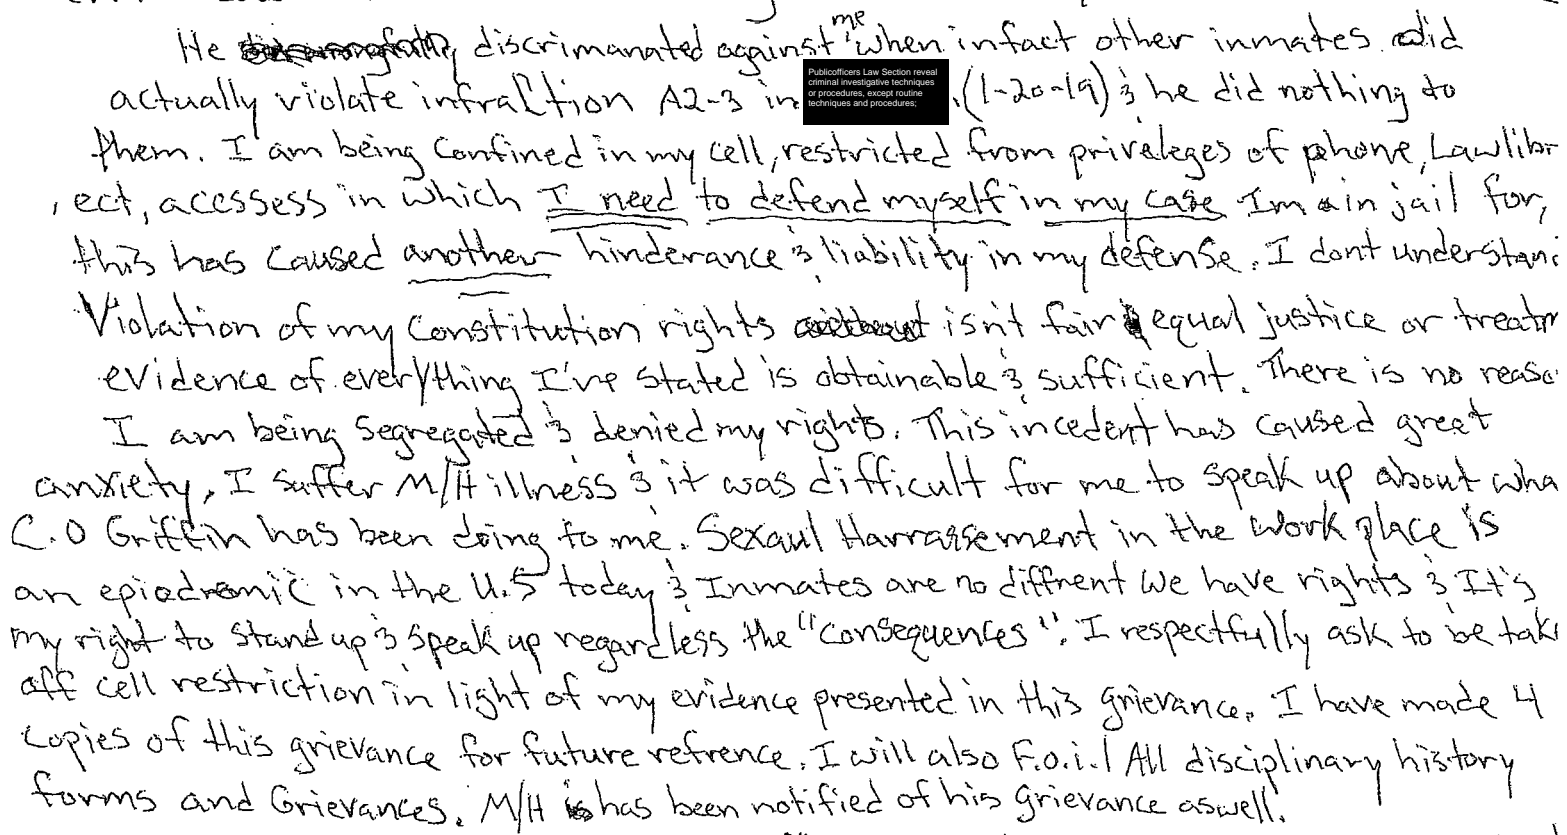 He discrimanated against me when infact other inmates did
actually violate infraction A2-3 in
Publicofficers Law Section reveal
criminal investigative techniques
or procedures, except routine
techniques and procedures;
.(1-20-19) & he did nothing to
them. I am being Confined in my cell, restricted from priveleges of phone, Lawlibr
, ect, acessess in which I need to defend myself in my case Im in jail for,
this has caused another hinderance & liability in my defense. I dont understand
Violation of my Constitution rights without isn't fair equal justice or treatm
evidence of everything I've stated is obtainable & sufficient. There is no reaso
I am being segregated & denied my rights. This incedent has caused great
anxiety, I suffer M/H illness & it was difficult for me to speak up about wha
C.O Griffin has been doing to me. Sexaul Harrassement in the work place is
an epiodromic in the U.S today & Inmates are no diffrent we have rights & It's
my right to stand up & speak up regardless the "consequences". I respectfully ask to be tak
off cell restriction in light of my evidence presented in this grievance. I have made 4
copies of this grievance for future refrence. I will also F.o.i.l All disciplinary history
forms and Grievances. M/H has been notified of his grievance aswell.